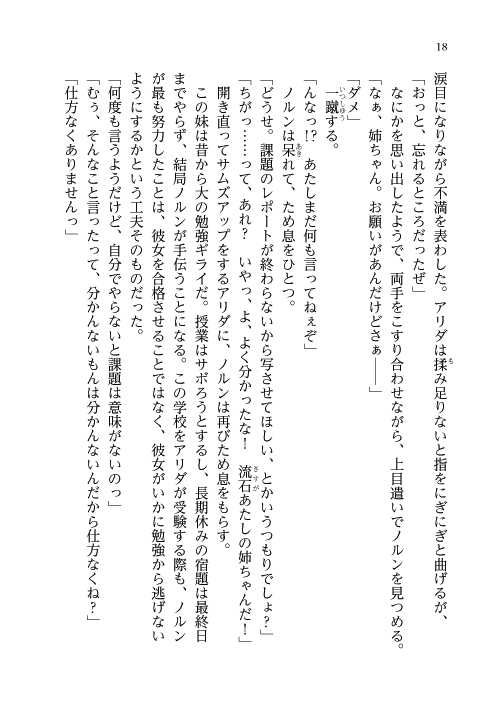 18
涙目になりながら不満を表わした。アリダは揉み足りないと指をにぎにぎと曲げるが、
「おっと、忘れるところだったぜ」
なにかを思い出したようで、両手をこすり合わせながら、上目遣いでノルンを見つめる。
「なぁ、姉ちゃん。お願いがあんだけどさぁ――」
「ダメ」
一蹴する。
「んなっ!?　あたしまだ何も言ってねぇぞ」
ノルンは呆れて、ため息をひとつ。
「どうせ。課題のレポートが終わらないから写させてほしい、とかいうつもりでしょ？」
「ちがっ……って、あれ？　いやっ、よ、よく分かったな！　流石あたしの姉ちゃんだ！」
開き直ってサムズアップをするアリダに、ノルンは再びため息をもらす。
この妹は昔から大の勉強ギライだ。授業はサボろうとするし、長期休みの宿題は最終日
までやらず、結局ノルンが手伝うことになる。この学校をアリダが受験する際も、ノルン
が最も努力したことは、彼女を合格させることではなく、彼女がいかに勉強から逃げない
ようにするかという工夫そのものだった。
「何度も言うようだけど、自分でやらないと課題は意味がないのっ」
「むぅ、そんなこと言ったって、分かんないもんは分かんないんだから仕方なくね？」
「仕方なくありませんっ」